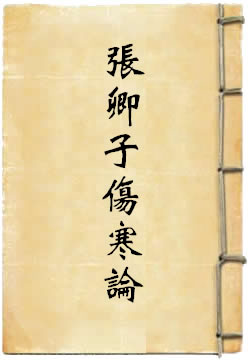 張卿子傷寒論